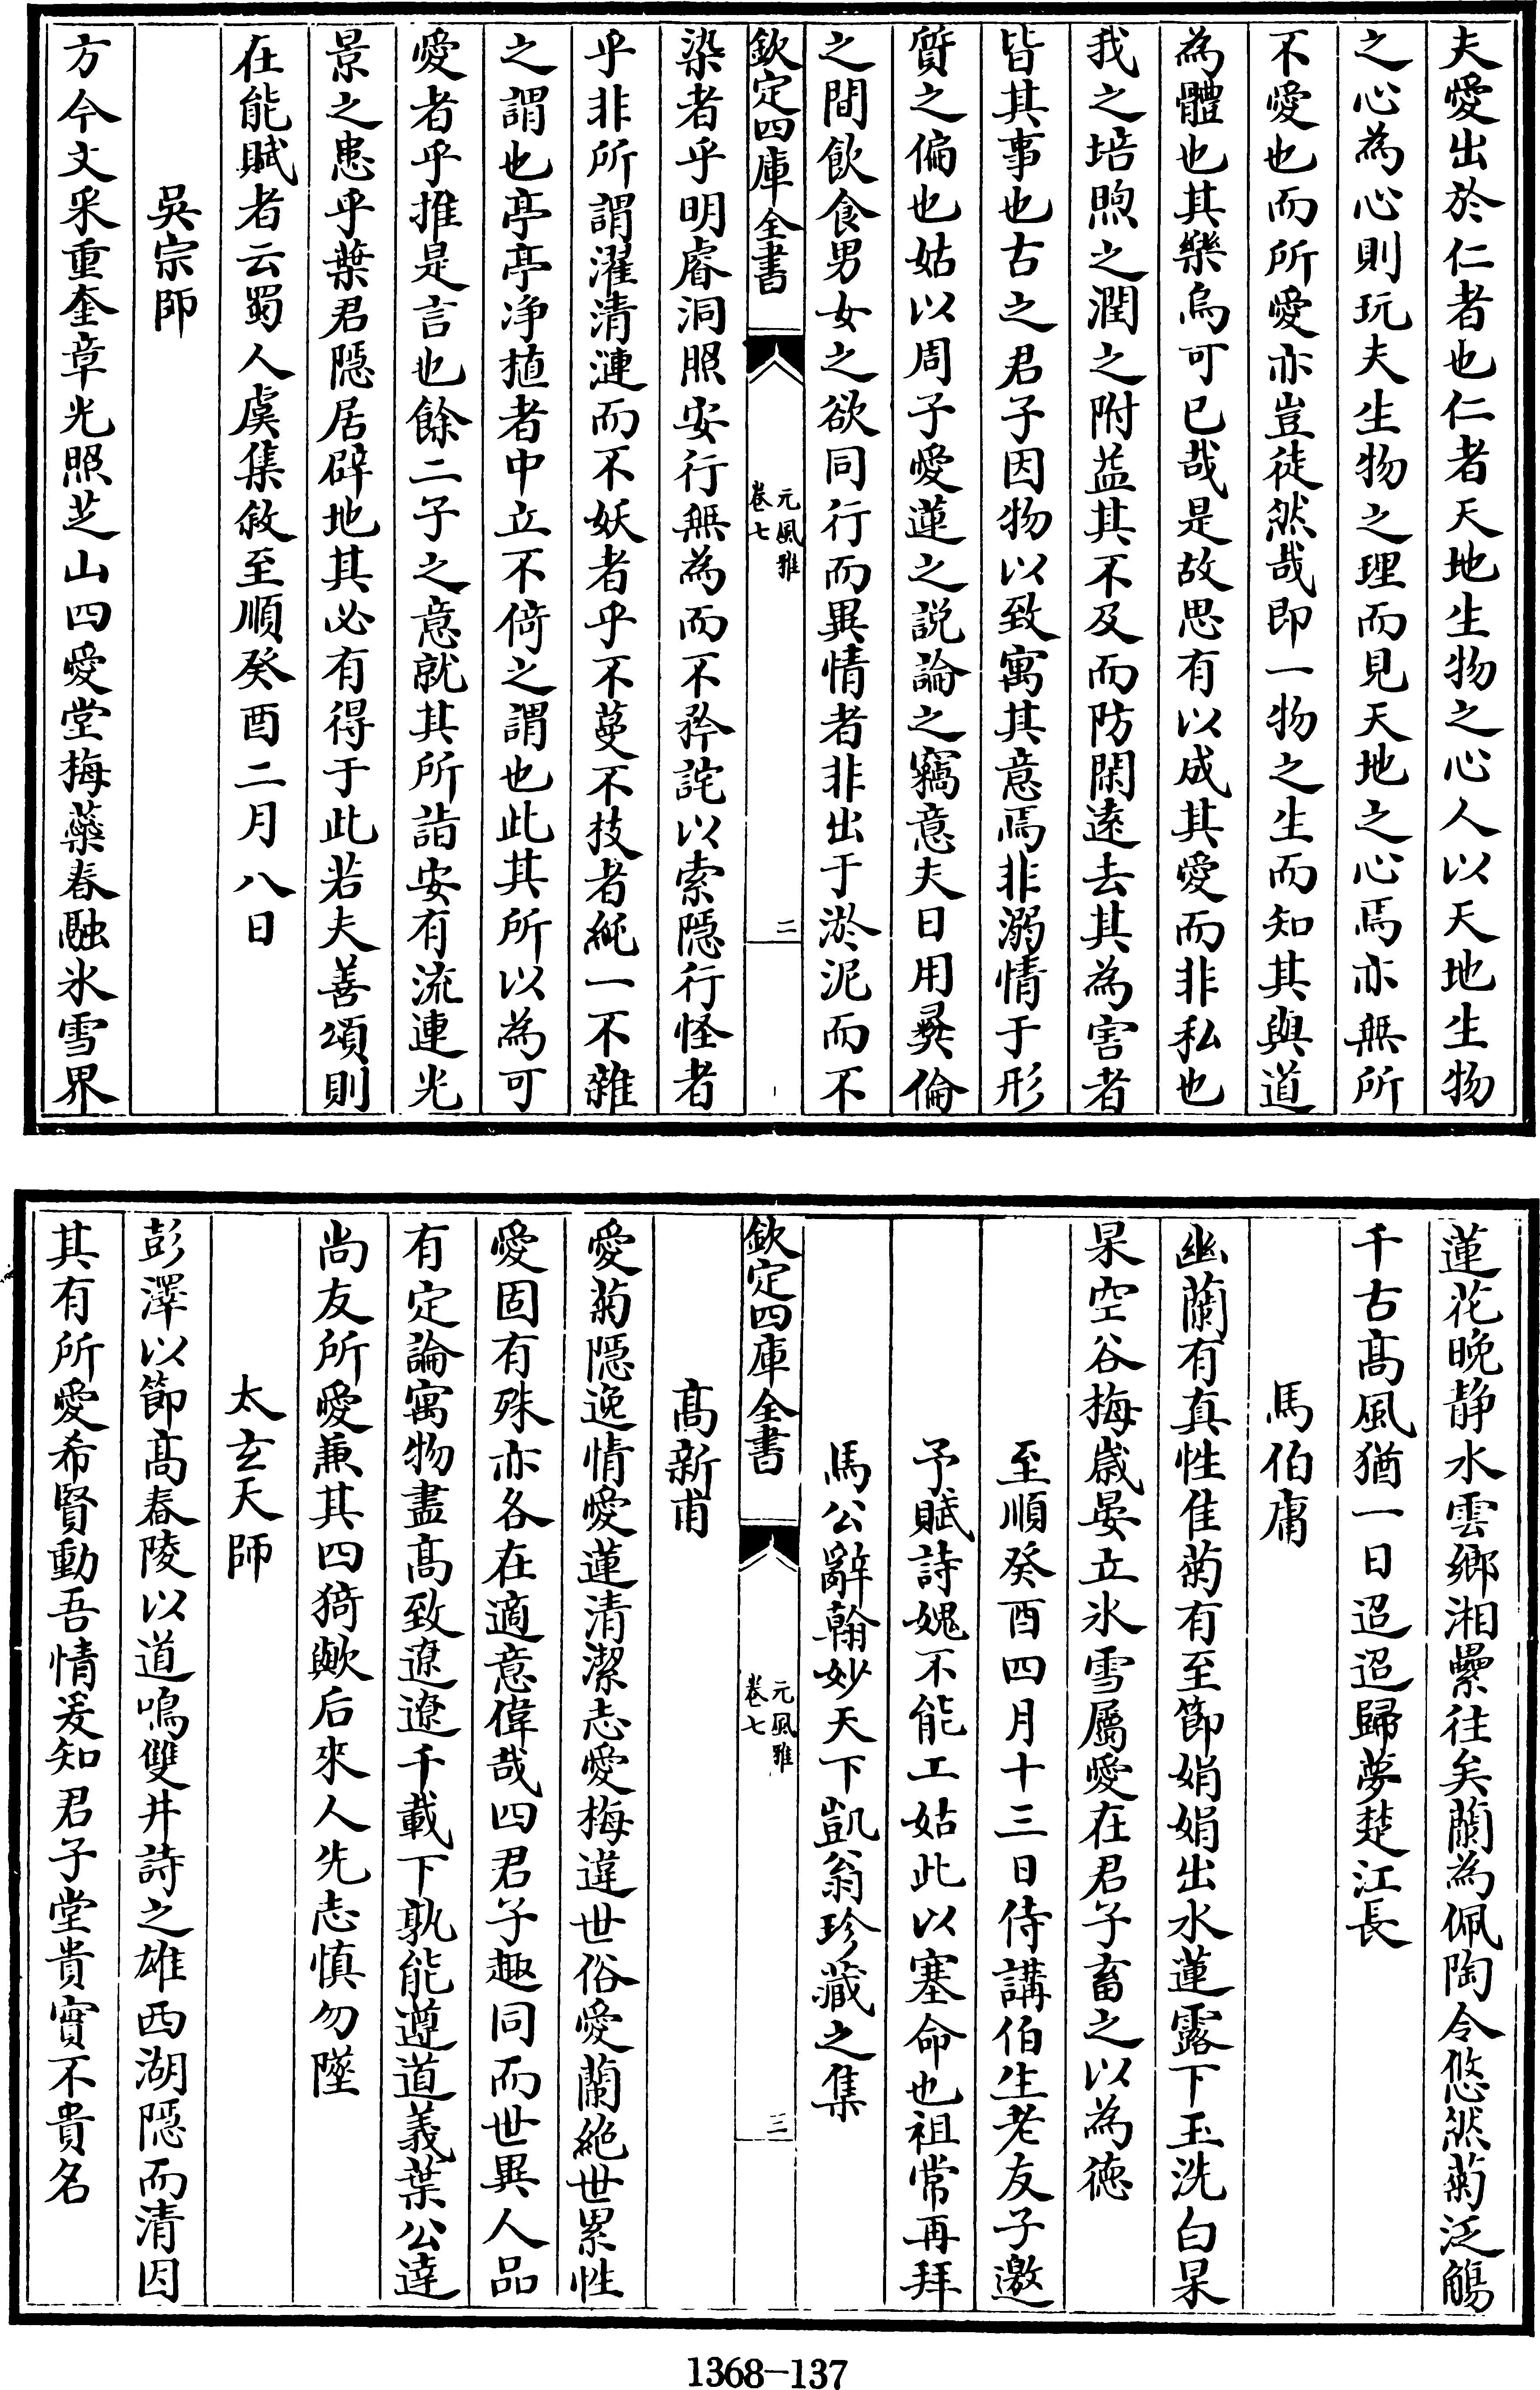 夫愛出於仁者也仁者天地生物之心人以天地生物
之心為心則玩夫生物之理而見天地之心焉亦無所
不愛也而所愛亦豈徒然哉即一物之生而知其與道
為體也其樂烏可已哉是故思有以成其愛而非私也
我之培煦之潤之附益其不及而防閑逺去其為害者
皆其事也古之君子因物以致寓其意焉非溺情于形
質之偏也姑以周子愛蓮之説論之竊意夫日用彛倫
之間飲食男女之欲同行而異情者非出于淤泥而不
欽定四庫全書
元風雅
卷七
二
染者乎明睿洞照安行無為而不矜詫以索隱行怪者
乎非所謂濯清漣而不妖者乎不蔓不技者純一不雜
之謂也亭亭净植者中立不倚之謂也此其所以為可
愛者乎推是言也餘二子之意就其所詣安有流連光
景之患乎葉君隱居辟地其必有得于此若夫善頌則
在能賦者云蜀人虞集敘至順癸酉二月八日
吳宗師
方今文采重奎章光照芝山四愛堂梅蘂春融氷雪界
蓮花晚静水雲鄉湘纍往矣蘭為佩陶令悠然菊泛觴
千古髙風猶一日迢迢歸夢楚江長
馬伯庸
幽蘭有真性隹菊有至節娟娟出水蓮露下玉洗白杲
杲空谷梅嵗晏立氷雪屬愛在君子畜之以為徳
至順癸酉四月十三日侍講伯生老友子邀
予賦詩媿不能工姑此以塞命也祖常再拜
馬公辭翰妙天下凱翁珍藏之集
欽定四庫全書
元風雅
卷七
三
髙新甫
愛菊隱逸情愛蓮清潔志愛梅違世俗愛蘭絶世累性
愛固有殊亦各在適意偉哉四君子趣同而世異人品
有定論寓物盡髙致遼遼千載下孰能遵道義葉公達
尚友所愛兼其四猗歟后來人先志慎勿墜
太玄天師
彭澤以節髙舂陵以道鳴雙井詩之雄西湖隱而清因
其有所愛希賢動吾情爰知君子堂貴實不貴名
1368-137